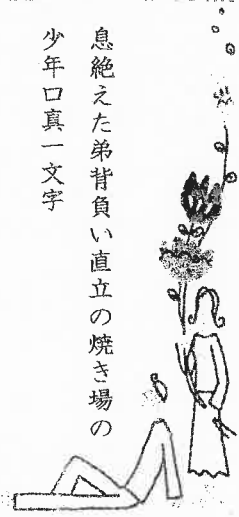 息絶えた弟背負い直立の焼き場の
少年口真一文字